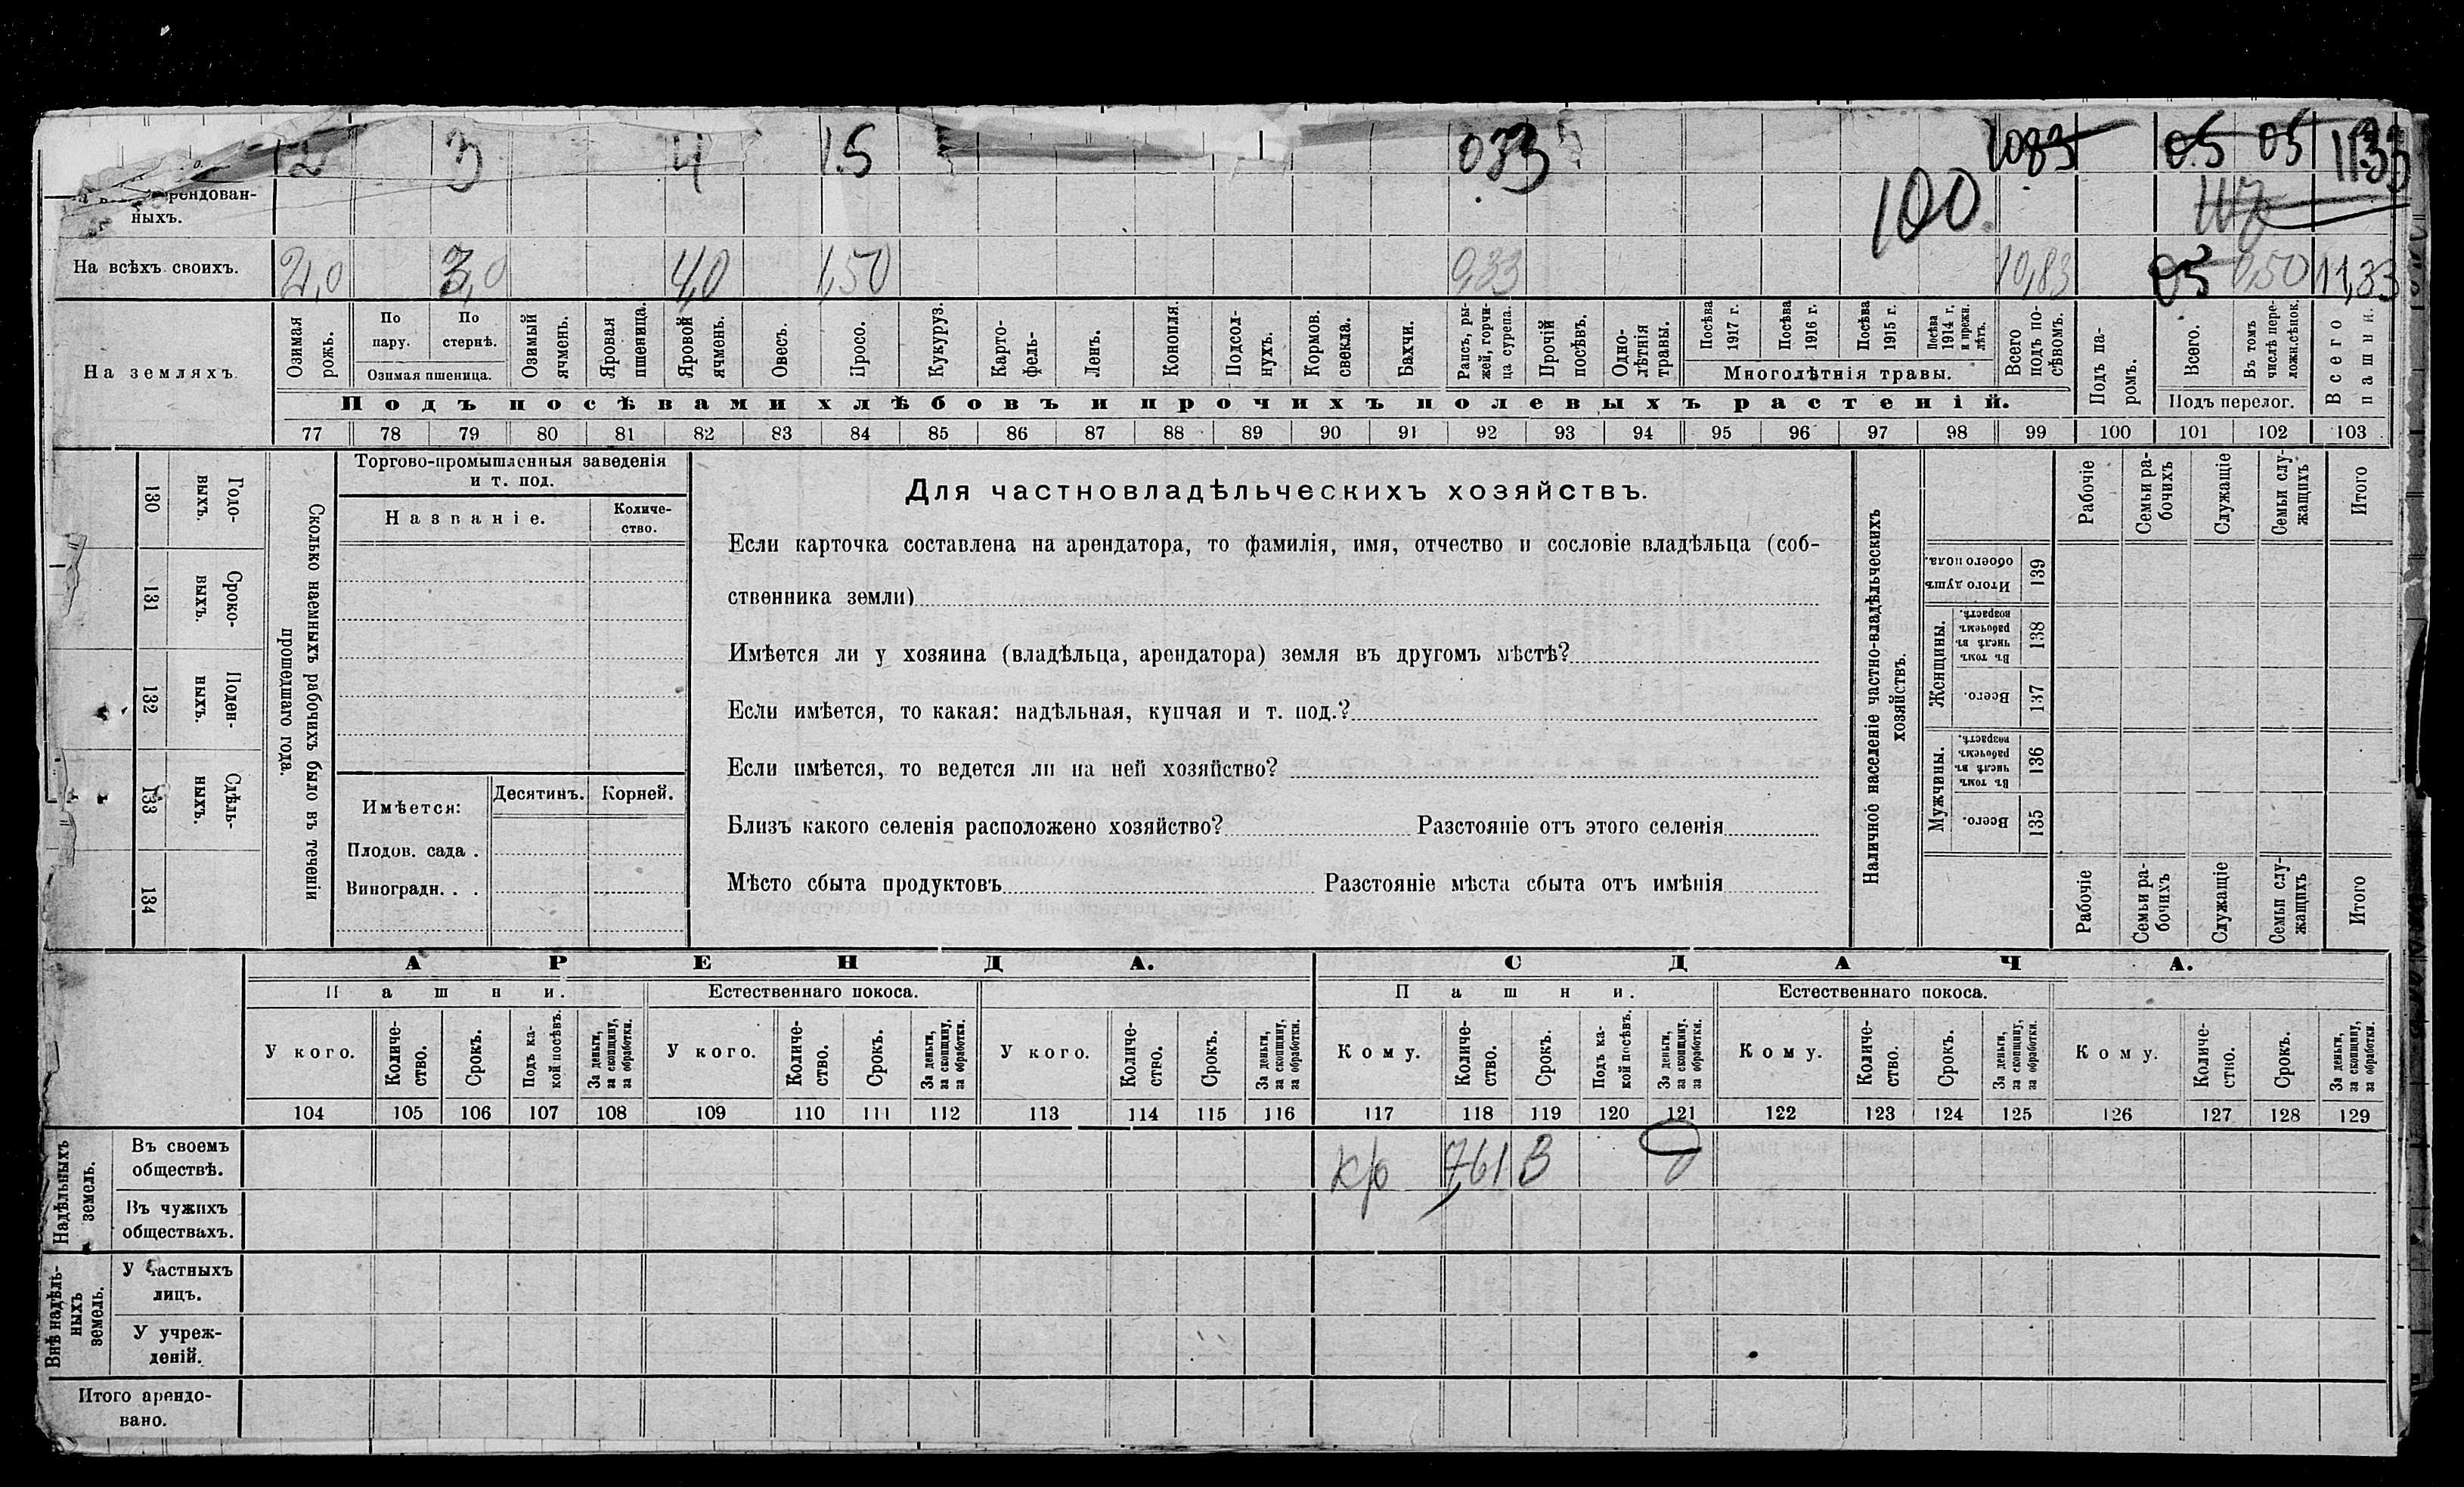 2 3 4 1.5 033 1083 05 05 1133
рендован-
ныхъ.
100
117
На всѣхъ своихъ. 2,0 3,0 4,0 1,50 0,33 10,83 05 0,50 11,33
На земляхъ.
Озимая рожь.
По пару.
По стернѣ.
Озимая пшеница.
Озимый ячмень.
Яровая пшеница.
Яровой ячмень.
Овесъ.
Просо.
Кукуруз.
Карто-
фель-
Ленъ.
Конопля.
Подсол-
нухъ.
Кормов. свекла.
Бахчи.
Рапсъ, ры-
жей, горчи-
ца сурепа.
Прочій посѣвъ.
Одно-
лѣтнія травы.
Посѣва 1917 г.
Посѣва 1916 г.
Посѣва 1915 г.
Посѣва 1914 г. и прежн. лѣтъ.
Многолѣтнія травы.
Всего подъ по-
сѣвомъ.
Подъ па-
ромъ.
Всего.
Въ томъ числѣ пере-
ложн.сѣнок.
Подъ перелог.
Всего пашни.
Подъ посѣвами хлѣбовъ и прочихъ полевыхъ растеній.
77 78 79 80 81 82 83 84 85 86 87 88 89 90 91 92 93 94 95 96 97 98 99 100 101 102 103
130 Годо-
выхъ.
131 Сроко-
выхъ.
132 Поден-
ныхъ.
133 Сдѣль-
ныхъ.
134
Сколько наемныхъ рабочихъ было въ теченіи
прошедшаго года.
Торгово-промышленныя заведенія
и т. под.
Названіе.
Количе-
ство.
Имѣется: Десятинъ. Корней.
Плодов. сада .
Виноградн. . .
Для частновладѣльческихъ хозяйствъ.
Если карточка составлена на арендатора, то фамилія, имя, отчество и сословіе владѣльца (соб-
ственника земли)
Имѣется ли у хозяина (владѣльца, арендатора) земля въ другомъ мѣстѣ?
Если имѣется, то какая: надѣльная, купчая и т. под.?
Если имѣется, то ведется ли на ней хозяйство?
Близъ какого селенія расположено хозяйство? Разстояніе отъ этого селенія
Мѣсто сбыта продуктовъ Разстояніе мѣста сбыта отъ имѣнія
Наличное населеніе частно-владѣльческихъ
хозяйствъ.
Рабочіе
Семьи ра-
бочихъ
Служащіе
Семьи слу-
жащихъ
Итого
Итого душъ обоего пола. 139
Женщины.
Въ томъ числѣ въ рабочемъ возрастѣ. 138
Всего. 137
Мужчины.
Въ томъ числѣ въ рабочемъ возрастѣ. 136
Всего. 135
Рабочіе
Семьи ра-
бочихъ
Служащіе
Семьи слу-
жащихъ
Итого
АРЕНДА. СДАЧА.
Пашни. Естественнаго покоса. Пашни. Естественнаго покоса.
У кого.
Количе-
ство.
Срокъ.
Подъ ка-
кой посѣвъ.
За деньги, за скопщину, за обработки.
У кого.
Количе-
ство.
Срокъ.
За деньги, за скопщину, за обработки.
У кого.
Количе-
ство.
Срокъ.
За деньги, за скопщину, за обработки.
Кому.
Количе-
ство.
Срокъ.
Подъ ка-
кой посѣвъ.
За деньги, за скопщину, за обработки.
Кому.
Количе-
ство.
Срокъ.
За деньги, за скопщину, за обработки.
Кому.
Количе-
ство.
Срокъ.
За деньги, за скопщину, за обработки.
104 105 106 107 108 109 110 111 112 113 114 115 116 117 118 119 120 121 122 123 124 125 126 127 128 129
Надѣльныхъ
земель.
Въ своемъ
обществѣ. кр 7,61 3
Въ чужихъ
обществахъ.
Внѣ надѣль-
ныхъ
земель.
У частныхъ
лицъ.
У учреж-
деній.
Итого арендо-
вано.